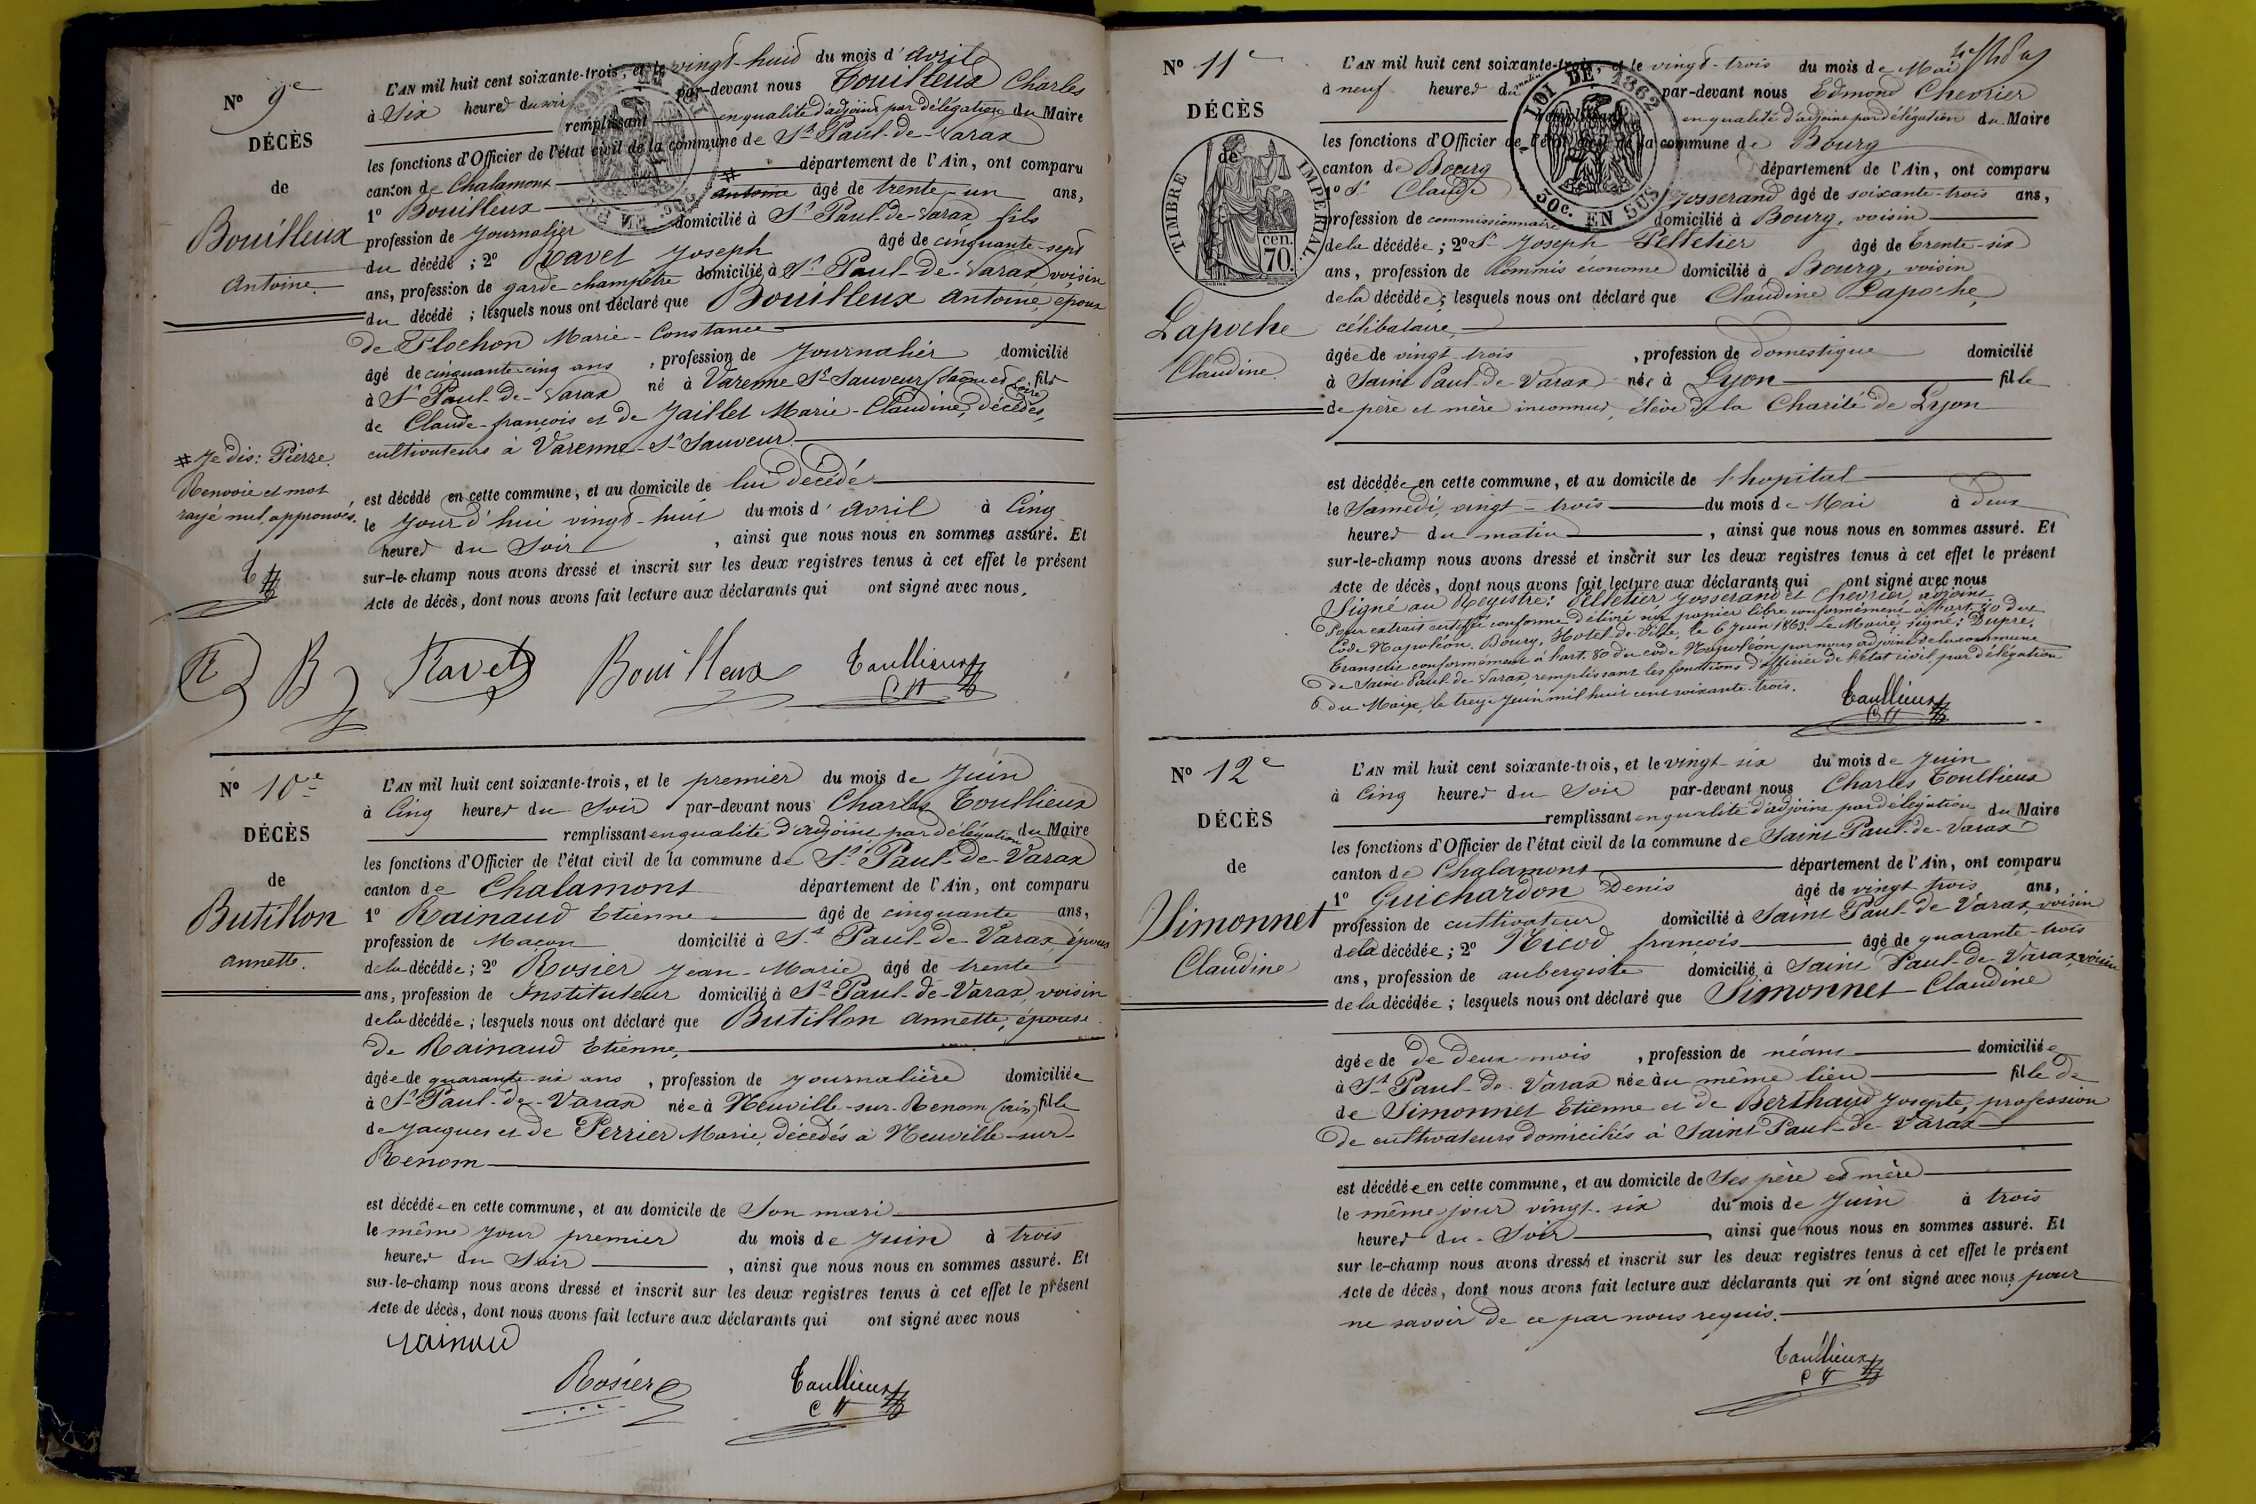 No 9e
DÉCÈS
de
Bouilleux
Antoine
L'AN mil huit cent soixante-trois, et le vingt-huit du mois d'avril
à Six heures du soir par-devant nous Toullieux Charles
remplissant en qualité d'adjoint par délégation du Maire
les fonctions d'Officier de l'état civil de la commune de St Paul-de-Varax
canton de Chalamont département de l'Ain, ont comparu
1º Bouilleux # antoine âgé de trente-un ans,
profession de Journalier domicilié à St Paul-de-Varax, fils
du décédé ; 2º Ravet Joseph âgé de cinquante-sept
ans, profession de garde champêtre domicilié à St Paul-de-Varax, voisin
du décédé ; lesquels nous ont déclaré que Bouilleux Antoine, époux
de Flochon Marie-Constance
âgé de cinquante-cinq ans, profession de Journalier domicilié
à St Paul-de-Varax né à Varenne St Sauveur (Saône et Loire) fils
de Claude-françois et de Jaillet Marie-Claudine, décédés,
cultivateurs à Varenne-St-Sauveur
# Je dis : Pierre.
Renvoi et mot
rayé nul, approuvés.
est décédé en cette commune, et au domicile de lui décédé
le Jour d'hui vingt-huit du mois d'avril à Cinq
heures du Soir, ainsi que nous nous en sommes assuré. Et
sur-le-champ nous avons dressé et inscrit sur les deux registres tenus à cet effet le présent
Acte de décès, dont nous avons fait lecture aux déclarants qui ont signé avec nous.
R B Ravet Bouilleux Toullieux
No 10e
DÉCÈS
de
Butillon
annette.
L'AN mil huit cent soixante-trois, et le premier du mois de Juin
à Cinq heures du Soir par-devant nous Charles Toullieux
remplissant en qualité d'adjoint par délégation du Maire
les fonctions d'Officier de l'état civil de la commune de St Paul-de-Varax
canton de Chalamont département de l'Ain, ont comparu
1º Rainaud Etienne âgé de cinquante ans,
profession de Maçon domicilié à St Paul-de-Varax, époux
de la décédée ; 2º Rosier Jean-Marie âgé de trente
ans, profession de Instituteur domicilié à St Paul-de-Varax, voisin
de la décédée ; lesquels nous ont déclaré que Butillon annette, épouse
de Rainaud Etienne,
âgée de quarante-six ans, profession de Journalière domiciliée
à St Paul-de-Varax née à Neuville-sur-Renom (ain) fille
de Jacques et de Perrier Marie, décédés à Neuville-sur-
Renom
est décédée en cette commune, et au domicile de Son mari
le même Jour premier du mois de Juin à trois
heures du Soir, ainsi que nous nous en sommes assuré. Et
sur-le-champ nous avons dressé et inscrit sur les deux registres tenus à cet effet le présent
Acte de décès, dont nous avons fait lecture aux déclarants qui ont signé avec nous
rainaud
Rosier Toullieux
No 11e
DÉCÈS
de
TIMBRE IMPÉRIAL
cen. 70.
LOI DE 1862
30c. EN SUS
Lapoche
Claudine
L'AN mil huit cent soixante-trois, et le vingt-trois du mois de Mai
à neuf heures du matin par-devant nous Edmond Chevrier
remplissant en qualité d'adjoint par délégation du Maire
les fonctions d'Officier de l'état civil de la commune de Bourg
canton de Bourg département de l'Ain, ont comparu
1º Sr Claude Josserand âgé de soixante-trois ans,
profession de commissionnaire domicilié à Bourg, voisin
de la décédée ; 2º Sr Joseph Pelletier âgé de trente-six
ans, profession de Commis économe domicilié à Bourg, voisin
de la décédée ; lesquels nous ont déclaré que Claudine Lapoche,
célibataire,
âgée de vingt-trois, profession de domestique domicilié
à Saint Paul-de-Varax née à Lyon fille
de père et mère inconnus, élève de la Charité de Lyon
est décédée en cette commune, et au domicile de l'hopital
le Samedi, vingt-trois du mois de Mai à deux
heures du matin, ainsi que nous nous en sommes assuré. Et
sur-le-champ nous avons dressé et inscrit sur les deux registres tenus à cet effet le présent
Acte de décès, dont nous avons fait lecture aux déclarants qui ont signé avec nous
Signé au Registre : Pelletier Josserand et Chevrier adjoint
Pour extrait certifié conforme délivré sur papier libre conformément à l'art. 80 du
Code Napoléon. Bourg, Hotel-de-Ville, le 6 Juin 1863. Le Maire, signé : Dupré.
Transcrit conformément à l'art. 80 du code Napoléon par nous adjoint de la commune
de Saint Paul-de-Varax, remplissant les fonctions d'officier de l'état civil par délégation
du Maire, le treize Juin mil huit cent soixante-trois.
Toullieux
No 12e
DÉCÈS
de
Simonnet
Claudine
L'AN mil huit cent soixante-trois, et le vingt-six du mois de Juin
à Cinq heures du Soir par-devant nous Charles Toullieux
remplissant en qualité d'adjoint par délégation du Maire
les fonctions d'Officier de l'état civil de la commune de Saint Paul-de-Varax
canton de Chalamont département de l'Ain, ont comparu
1º Guichardon Denis âgé de vingt trois ans,
profession de cultivateur domicilié à Saint Paul-de-Varax, voisin
de la décédée ; 2º Nicod françois âgé de quarante-trois
ans, profession de aubergiste domicilié à Saint Paul-de-Varax, voisin
de la décédée ; lesquels nous ont déclaré que Simonnet Claudine
âgée de de deux mois, profession de néant domiciliée
à St Paul-de-Varax née au même lieu fille de
de Simonnet Etienne et de Berthaud Josepte, profession
de cultivateurs domiciliés à Saint Paul-de-Varax
est décédée en cette commune, et au domicile de Ses père et mère
le même jour vingt-six du mois de Juin à trois
heures du Soir, ainsi que nous nous en sommes assuré. Et
sur-le-champ nous avons dressé et inscrit sur les deux registres tenus à cet effet le présent
Acte de décès, dont nous avons fait lecture aux déclarants qui n'ont signé avec nous pour
ne savoir de ce par nous requis.
Toullieux